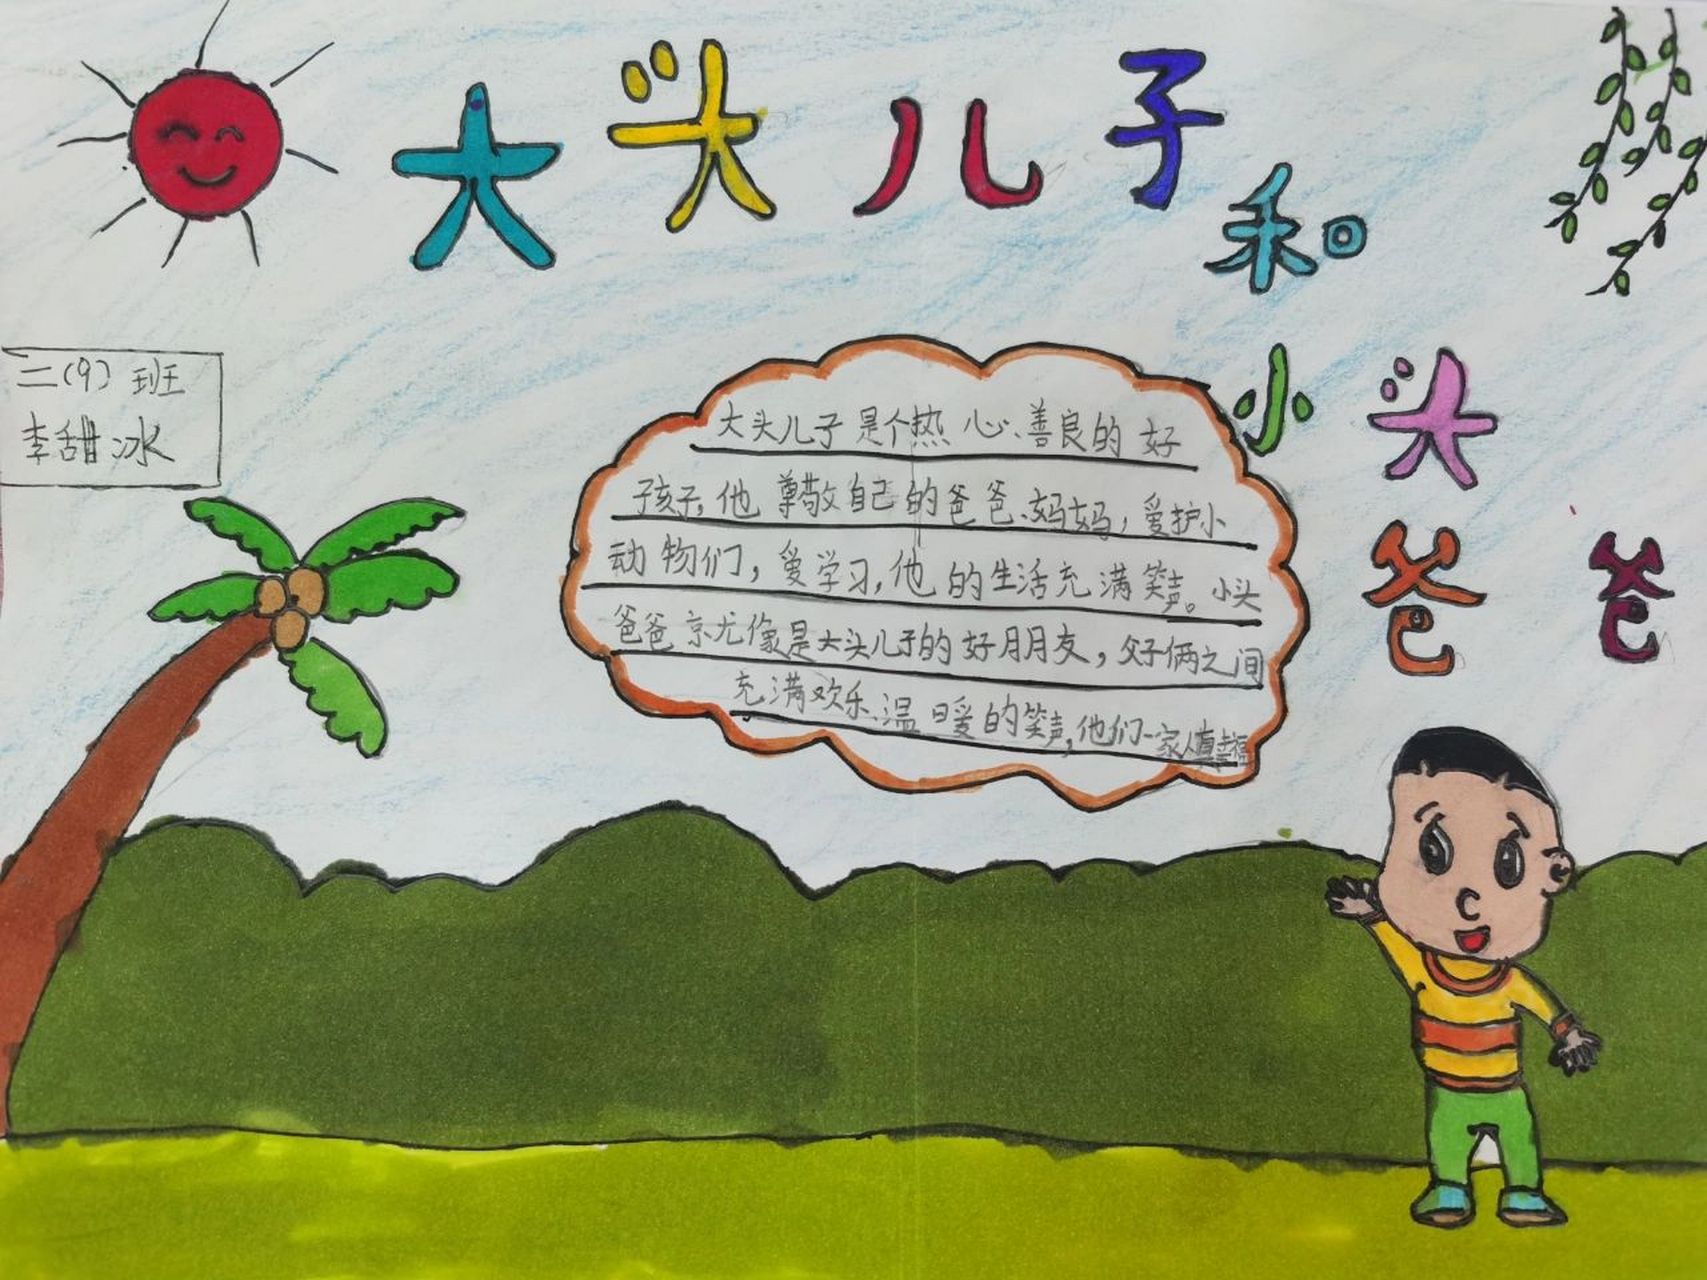 大头儿子
和
小头
爸爸
二(9)班
李甜冰
大头儿子是个热心、善良的好
孩子,他尊敬自己的爸爸、妈妈,爱护小
动物们,爱学习,他的生活充满笑声。小头
爸爸京尤像是大头儿子的好朋友,父子俩之间
充满欢乐、温暖的笑声,他们一家人真幸福